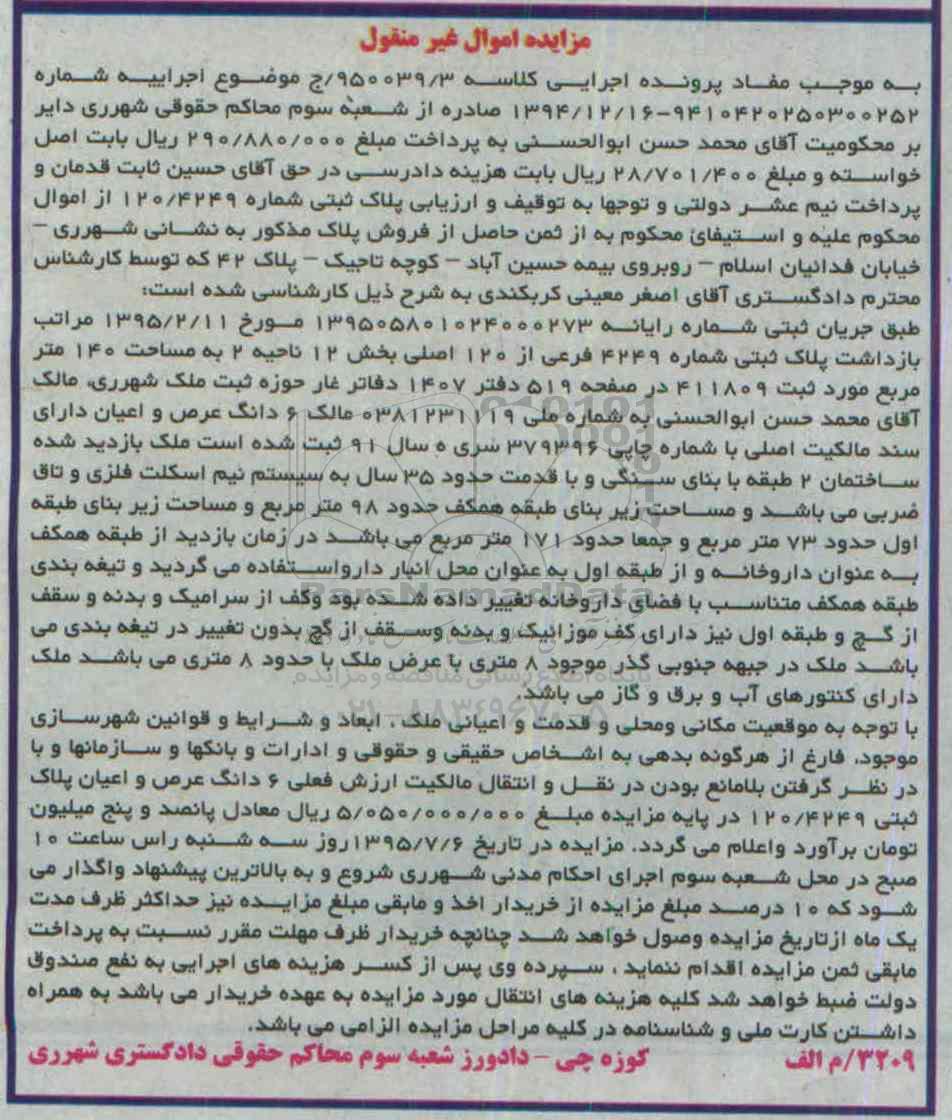 مزایده اموال غیر منقول
به موجب مفاد پرونده اجرایی کلاسه ۹۵۰۰۳۹/۳/ج موضوع اجراییه شماره
۹۴۱۰۴۲۰۲۵۰۳۰۰۲۵۲-۱۳۹۴/۱۲/۱۶ صادره از شعبه سوم محاکم حقوقی شهرری دایر
بر محکومیت آقای محمد حسن ابوالحسنی به پرداخت مبلغ ۲۹۰/۸۸۰/۰۰۰ ریال بابت اصل
خواسته و مبلغ ۲۸/۷۰۱/۴۰۰ ریال بابت هزینه دادرسی در حق آقای حسین ثابت قدمان و
پرداخت نیم عشر دولتی و توجها به توقیف و ارزیابی پلاک ثبتی شماره ۱۲۰/۴۲۴۹ از اموال
محکوم علیه و استیفای محکوم به از ثمن حاصل از فروش پلاک مذکور به نشانی شهرری –
خیابان فدائیان اسلام – روبروی بیمه حسین آباد – کوچه تاجیک – پلاک ۴۲ که توسط کارشناس
محترم دادگستری آقای اصغر معینی کربکندی به شرح ذیل کارشناسی شده است:
طبق جریان ثبتی شماره رایانه ۱۳۹۵۰۵۸۰۱۰۲۴۰۰۰۲۷۳ مورخ ۱۳۹۵/۲/۱۱ مراتب
بازداشت پلاک ثبتی شماره ۴۲۴۹ فرعی از ۱۲۰ اصلی بخش ۱۲ ناحیه ۲ به مساحت ۱۴۰ متر
مربع مورد ثبت ۴۱۱۸۰۹ در صفحه ۵۱۹ دفتر ۱۴۰۷ دفاتر غار حوزه ثبت ملک شهرری، مالک
آقای محمد حسن ابوالحسنی به شماره ملی ۰۳۸۱۲۳۱۱۱۹ مالک ۶ دانگ عرص و اعیان دارای
سند مالکیت اصلی با شماره چاپی ۳۷۹۳۹۶ سری ه سال ۹۱ ثبت شده است ملک بازدید شده
ساختمان ۲ طبقه با بنای سنگی و با قدمت حدود ۳۵ سال به سیستم نیم اسکلت فلزی و تاق
ضربی می باشد و مساحت زیر بنای طبقه همکف حدود ۹۸ متر مربع و مساحت زیر بنای طبقه
اول حدود ۷۳ متر مربع و جمعا حدود ۱۷۱ متر مربع می باشد در زمان بازدید از طبقه همکف
به عنوان داروخانه و از طبقه اول به عنوان محل انبار دارواستفاده می گردید و تیغه بندی
طبقه همکف متناسب با فضای داروخانه تغییر داده شده بود وکف از سرامیک و بدنه و سقف
از گچ و طبقه اول نیز دارای کف موزائیک و بدنه وسقف از گچ بدون تغییر در تیغه بندی می
باشد ملک در جبهه جنوبی گذر موجود ۸ متری با عرض ملک با حدود ۸ متری می باشد ملک
دارای کنتورهای آب و برق و گاز می باشد.
با توجه به موقعیت مکانی ومحلی و قدمت و اعیانی ملک ، ابعاد و شرایط و قوانین شهرسازی
موجود، فارغ از هرگونه بدهی به اشخاص حقیقی و حقوقی و ادارات و بانکها و سازمانها و با
در نظر گرفتن بلامانع بودن در نقل و انتقال مالکیت ارزش فعلی ۶ دانگ عرص و اعیان پلاک
ثبتی ۱۲۰/۴۲۴۹ در پایه مزایده مبلغ ۵/۰۵۰/۰۰۰/۰۰۰ ریال معادل پانصد و پنج میلیون
تومان برآورد واعلام می گردد. مزایده در تاریخ ۱۳۹۵/۷/۶روز سه شنبه راس ساعت ۱۰
صبح در محل شعبه سوم اجرای احکام مدنی شهرری شروع و به بالاترین پیشنهاد واگذار می
شود که ۱۰ درصد مبلغ مزایده از خریدار اخذ و مابقی مبلغ مزایده نیز حداکثر ظرف مدت
یک ماه ازتاریخ مزایده وصول خواهد شد چنانچه خریدار ظرف مهلت مقرر نسبت به پرداخت
مابقی ثمن مزایده اقدام ننماید ، سپرده وی پس از کسر هزینه های اجرایی به نفع صندوق
دولت ضبط خواهد شد کلیه هزینه های انتقال مورد مزایده به عهده خریدار می باشد به همراه
داشتن کارت ملی و شناسنامه در کلیه مراحل مزایده الزامی می باشد.
۳۲۰۹/م الف کوزه چی – دادورز شعبه سوم محاکم حقوقی دادگستری شهرری
ParsNamadData
پایگاه اطلاع رسانی مناقصه و مزایده
۰۲۱-۸۸۳۴۹۶۷۰-۵